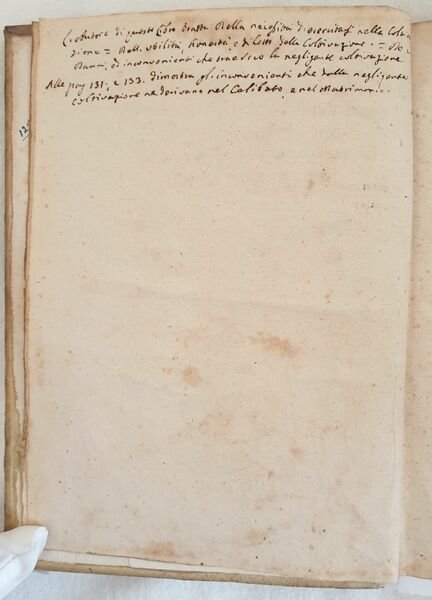 L'Autore di questo libro tratta della necessità d'esercitarsi nella Colti
vazione = Dell'utilità, onestà, e diletto della Coltivazione. = De
Danni, ed inconvenienti che trae seco la negligente coltivazione
Alle pag 131, e 133. dimostra gl'inconvenienti che dalla negligente
coltivazione ne derivano nel Celibato, e nel Matrimonio.